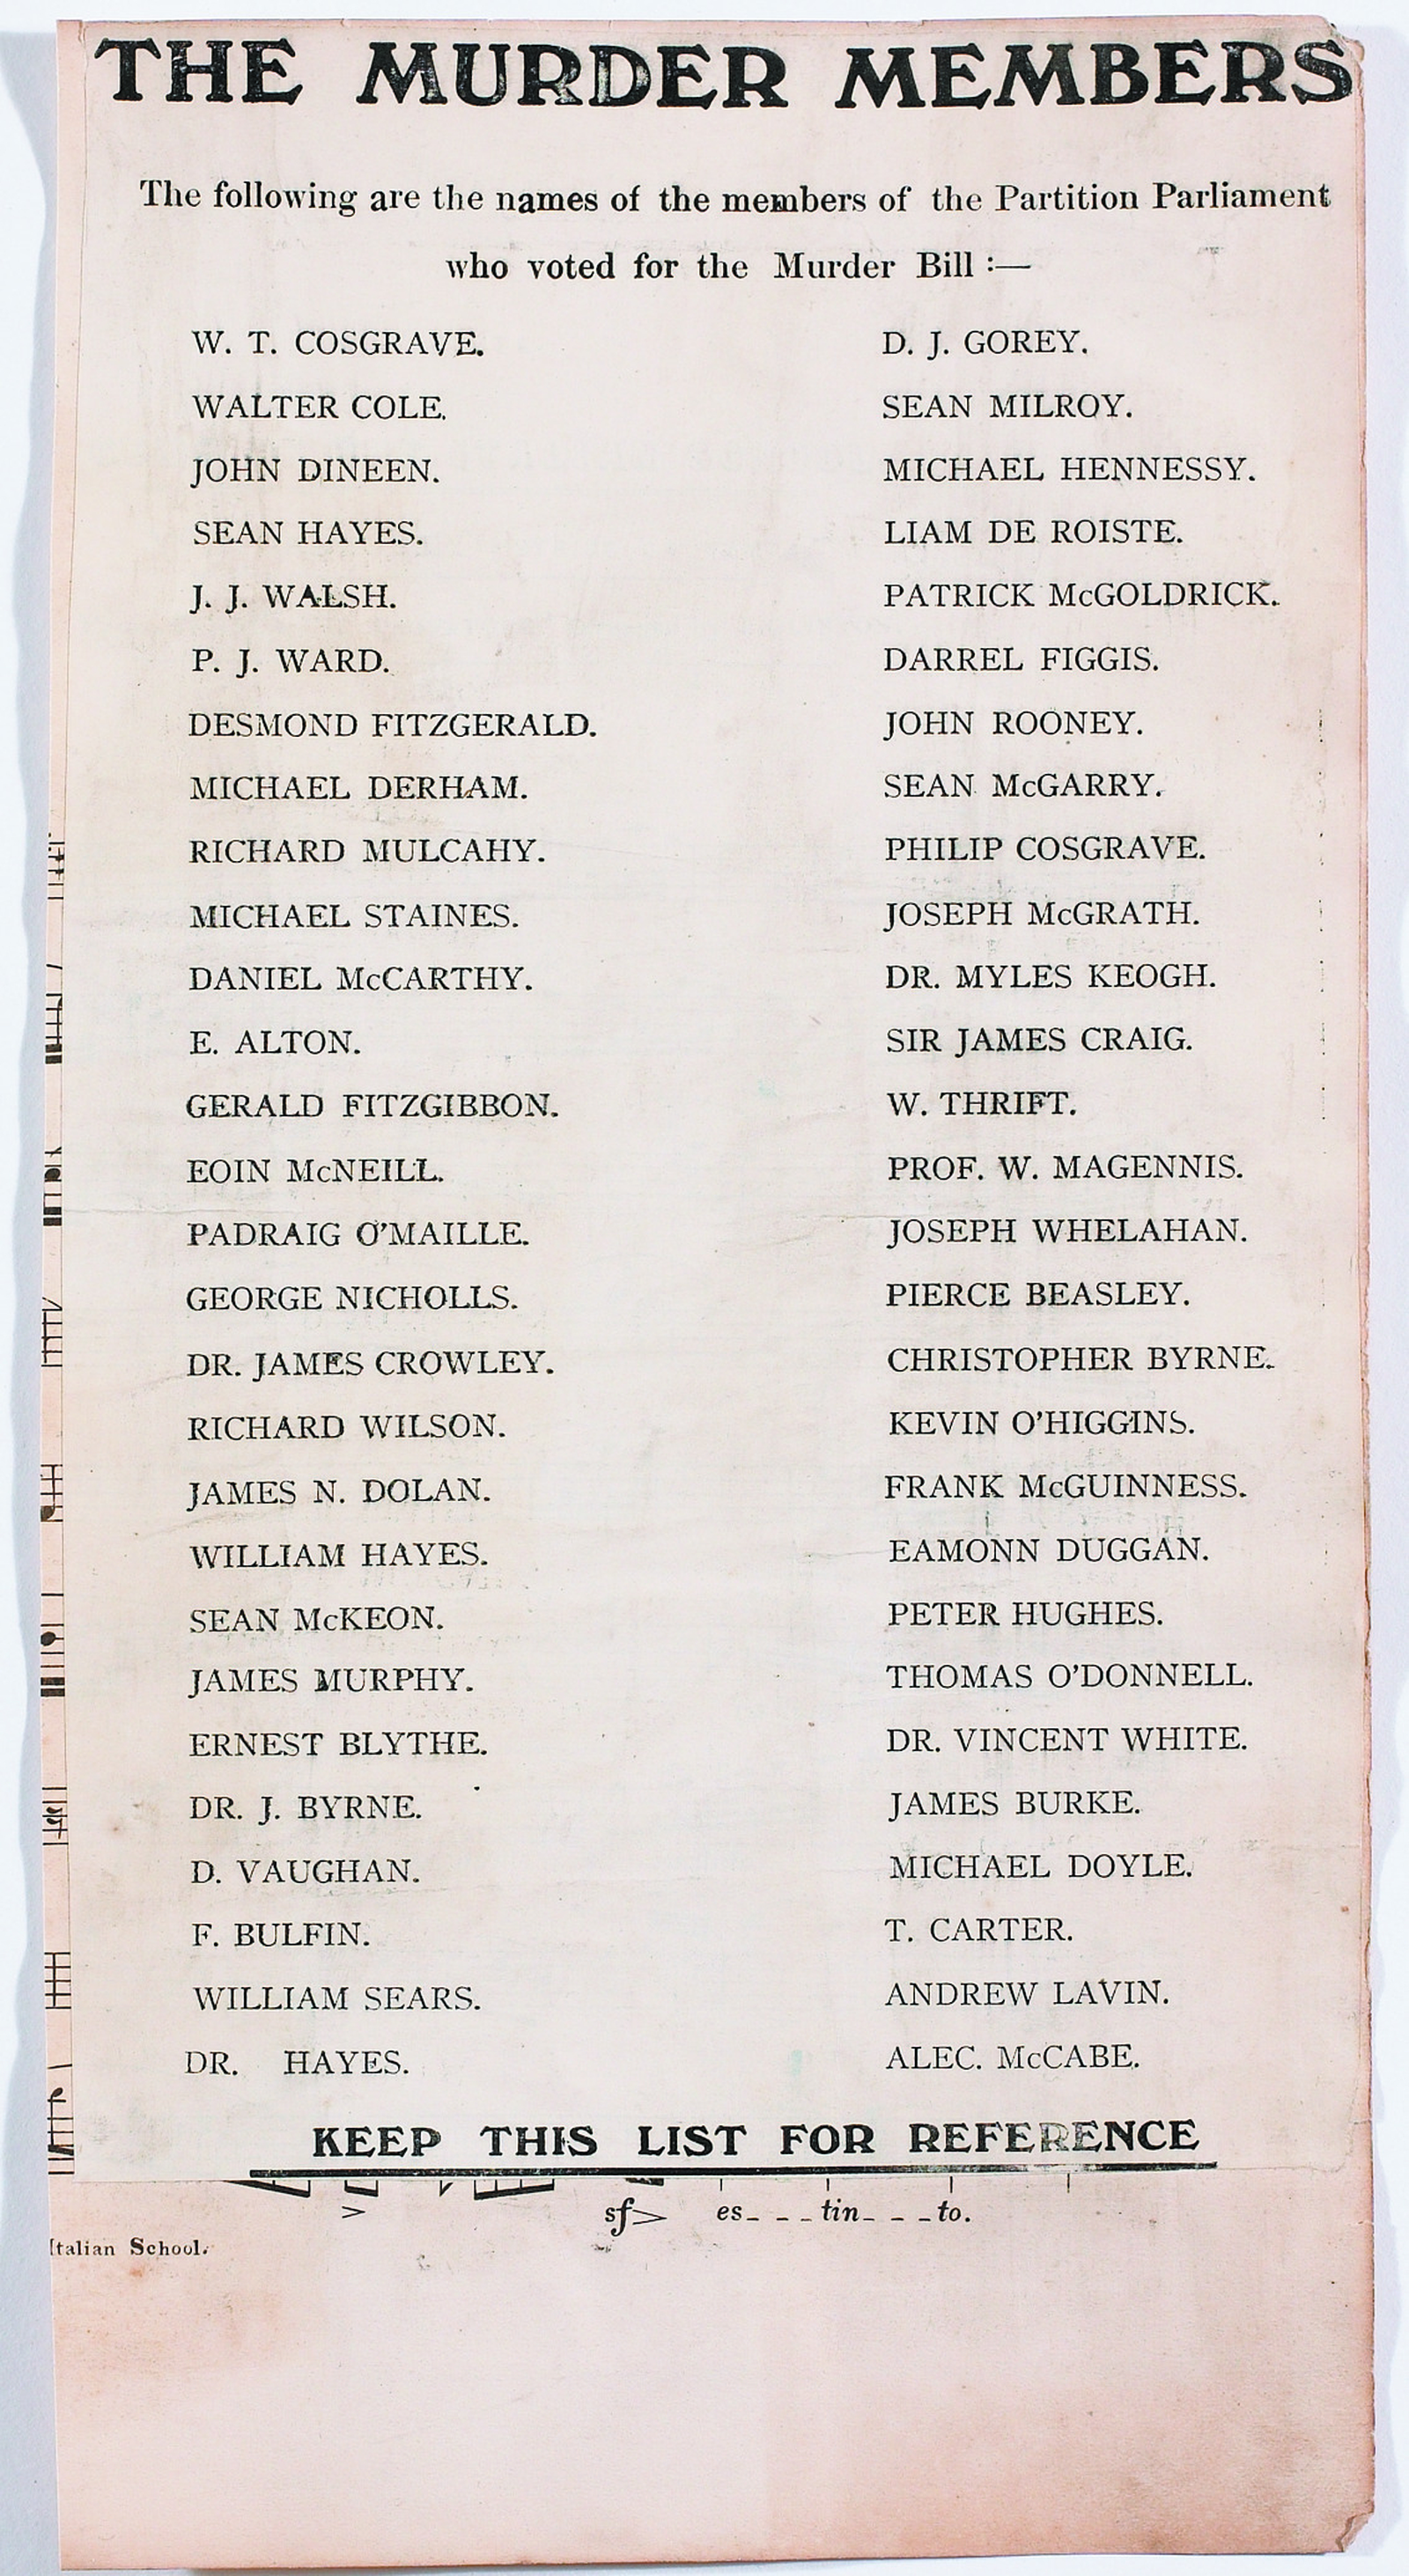 THE MURDER MEMBERS
The following are the names of the members of the Partition Parliament
who voted for the Murder Bill :—
W. T. COSGRAVE.
WALTER COLE.
JOHN DINEEN.
SEAN HAYES.
J. J. WALSH.
P. J. WARD.
DESMOND FITZGERALD.
MICHAEL DERHAM.
RICHARD MULCAHY.
MICHAEL STAINES.
DANIEL McCARTHY.
E. ALTON.
GERALD FITZGIBBON.
EOIN McNEILL.
PADRAIG O'MAILLE.
GEORGE NICHOLLS.
DR. JAMES CROWLEY.
RICHARD WILSON.
JAMES N. DOLAN.
WILLIAM HAYES.
SEAN McKEON.
JAMES MURPHY.
ERNEST BLYTHE.
DR. J. BYRNE.
D. VAUGHAN.
F. BULFIN.
WILLIAM SEARS.
DR. HAYES.
D. J. GOREY.
SEAN MILROY.
MICHAEL HENNESSY.
LIAM DE ROISTE.
PATRICK McGOLDRICK.
DARREL FIGGIS.
JOHN ROONEY.
SEAN McGARRY.
PHILIP COSGRAVE.
JOSEPH McGRATH.
DR. MYLES KEOGH.
SIR JAMES CRAIG.
W. THRIFT.
PROF. W. MAGENNIS.
JOSEPH WHELAHAN.
PIERCE BEASLEY.
CHRISTOPHER BYRNE.
KEVIN O'HIGGINS.
FRANK McGUINNESS.
EAMONN DUGGAN.
PETER HUGHES.
THOMAS O'DONNELL.
DR. VINCENT WHITE.
JAMES BURKE.
MICHAEL DOYLE.
T. CARTER.
ANDREW LAVIN.
ALEC. McCABE.
KEEP THIS LIST FOR REFERENCE
sf> es_ _ _ tin_ _ _ to.
Italian School.